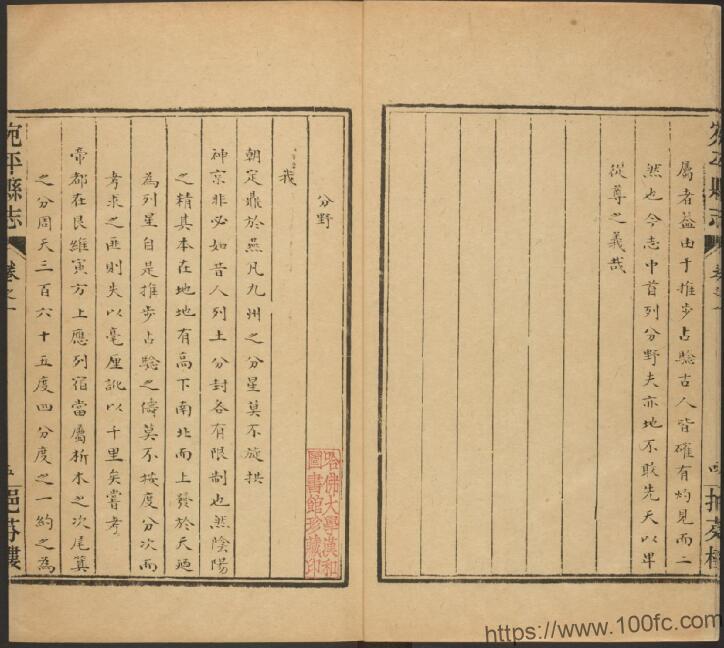 屬者益由于推步占驗古人皆確有灼見而二
然也今志中首列分野夫亦地不敢先天以卑
從尊之義哉
宛平縣志
卷之一
四
分野
我
朝定鼎於燕凡九州之分星莫不旋拱
神京非必如昔人列上分封各有限制也然陰陽
之精其本在地地有高下南北而上發於天廼
為列星自是推步占驗之儔莫不按度分次而
考求之匝則失以毫厘訛以千里矣嘗考
帝都在艮維寅方上應列宿當屬析木之次尾箕
之分周天三百六十五度四分度之一約之為
宛平縣志
卷之一
五
挹芬樓
哈佛大學漢和
圖書館珍藏印
https://www.100fc.com